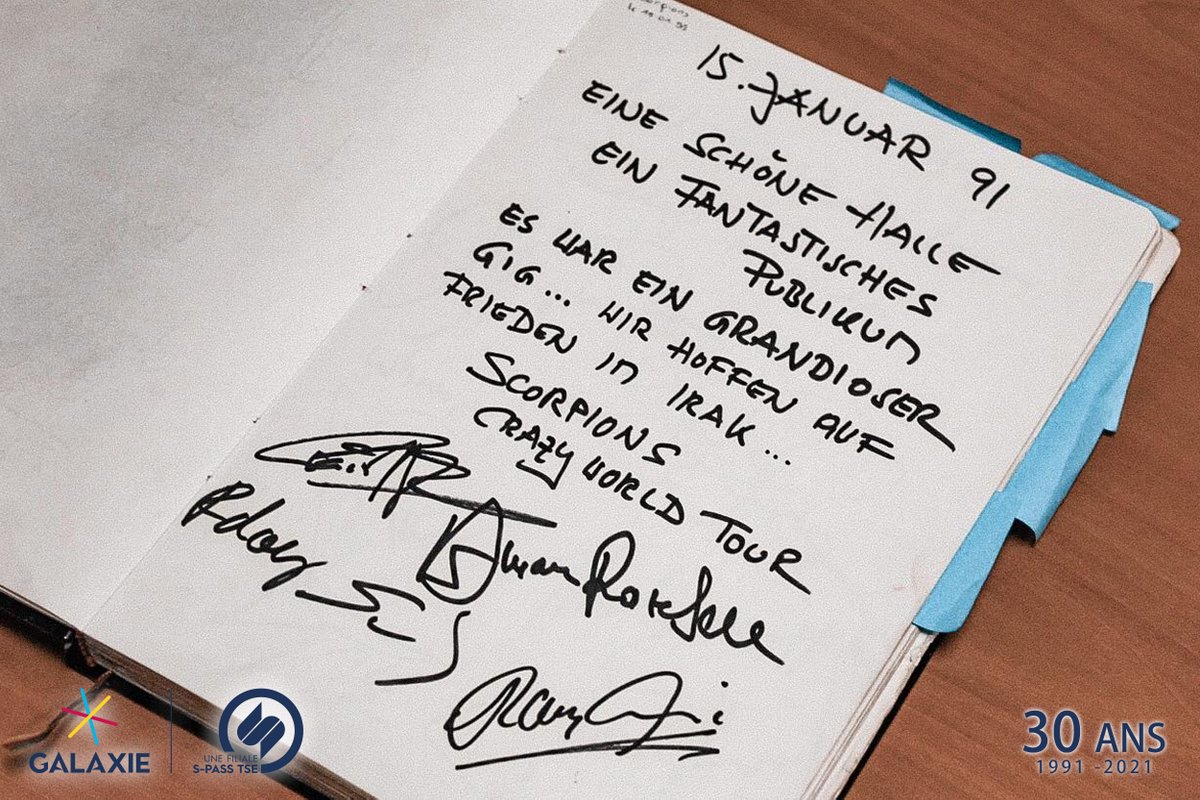 15. JANUAR 91
EINE SCHÖNE HALLE
EIN FANTASTISCHES
PUBLIKUM
ES WAR EIN GRANDIOSER
GIG... WIR HOFFEN AUF
FRIEDEN IM IRAK...
SCORPIONS
CRAZY WORLD TOUR
GALAXIE
UNE FILIALE
S-PASS TSE
30 ANS
1991 -2021